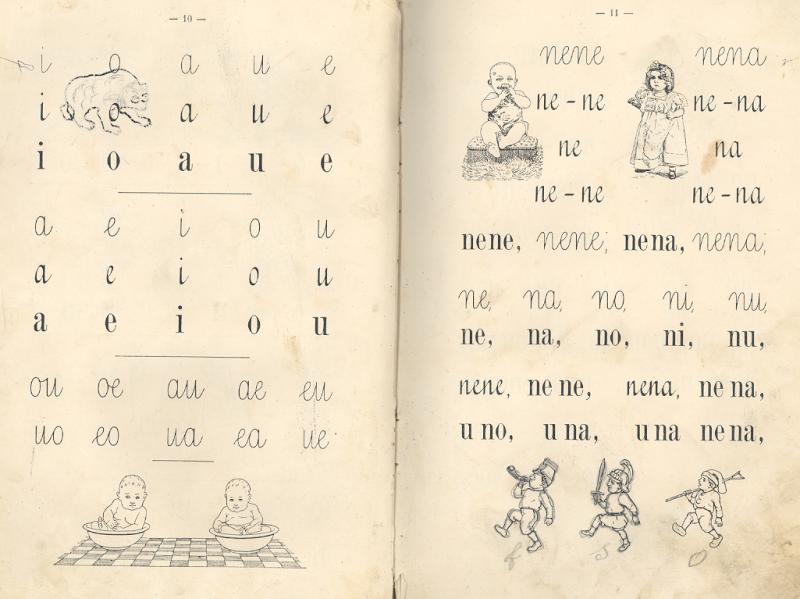 — 10 —
i o a u e
i o a u e
i o a u e
a e i o u
a e i o u
a e i o u
ou oe au ae eu
uo eo ua ea ue
— 11 —
nene
ne-ne
ne
ne-ne
nena
ne-na
na
ne-na
nene, nene, nena, nena,
ne, na, no, ni, nu,
ne, na, no, ni, nu,
nene, ne ne, nena, ne na,
u no, u na, u na ne na,